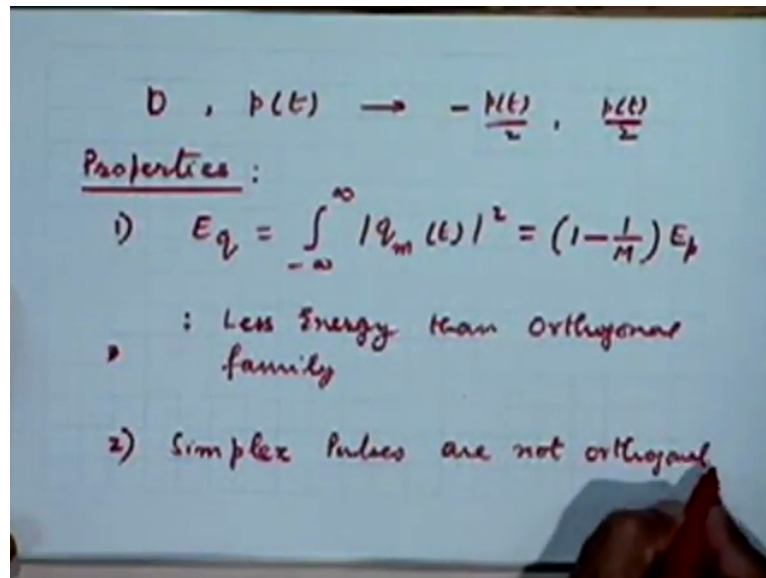 0 , p(t) → - p(t)/2 , p(t)/2
Properties :
1) E_q = ∫_{-∞}^{∞} |q_m(t)|² = (1 - 1/M) E_p
: Less Energy than Orthogonal
family
2) Simplex Pulses are not orthogonal